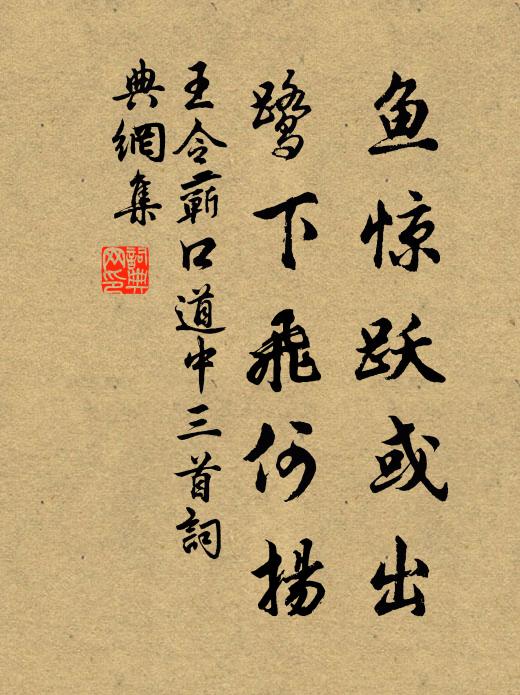 鱼惊跃或出
鹭下飛何揚
王令蕲口道中三首詞
典網集
詞典
网印